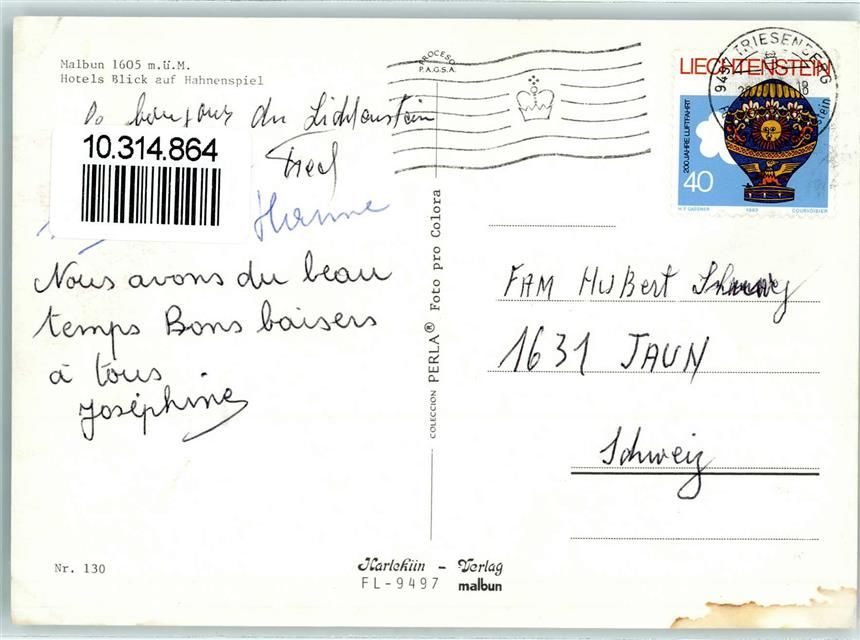 Malbun 1605 m.ü.M.
Hotels Blick auf Hahnenspiel
du Lichtenstein
10.314.864
Fred
Hanne
Nous avons du beau
temps Bons baisers
à tous
Joséphine
Nr. 130
COLECCION PERLA® Foto pro Colora
Harlekiin - Verlag
FL-9497 malbun
PROCESO
P.A.G.S.A.
TRIESENBERG
LIECHTENSTEIN
200 JAHRE LUFTFAHRT
40
1983 COURVOISIER
FAM Hubert
1631 JAUN
Schweiz